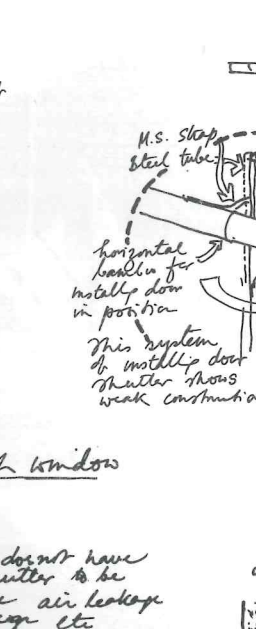 M.S. strap
Steel tube
horizontal
bamboo for
installg door
in position
This system
of installg door
shutter shows
weak constructio
window
doesnot have
utter to be
air leakage
etc